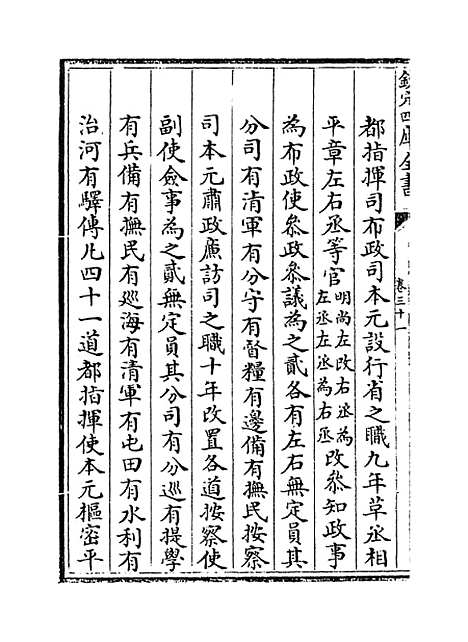 欽定四庫全書
卷三十一
都指揮司布政司本元設行省之職九年革丞相
平章左右丞等官明尚左改右丞為左丞左丞為右丞改參知政事
為布政使參政參議為之貳各有左右無定員其
分司有清軍有分守有督糧有邊備有撫民按察
司本元肅政廉訪司之職十年改置各道按察使
副使僉事為之貳無定員其分司有分巡有提學
有兵備有撫民有巡海有清軍有屯田有水利有
治河有驛傳凡四十一道都指揮使本元樞密平